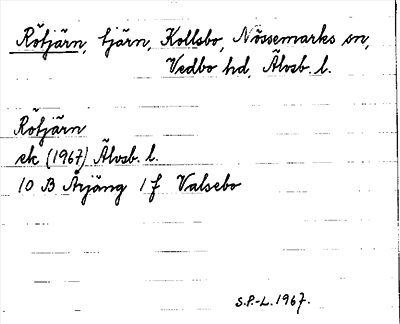 Rötjärn, tjärn, Kollsbo, Nössemarks sn,
Vedbo hd, Älvsb. l.
Rötjärn
ek (1967) Älvsb. l.
10 B Årjäng 1 f Valsebo
S.P.-L. 1967.